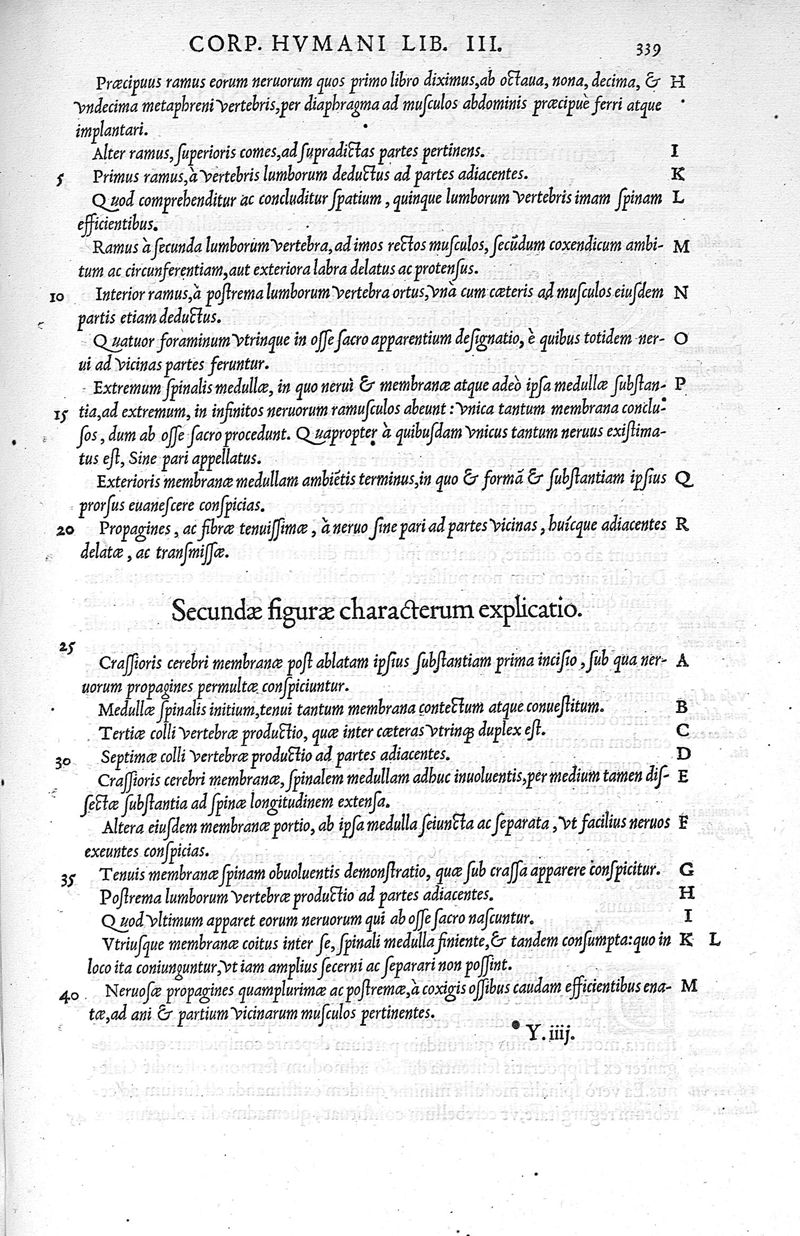 CORP. HVMANI LIB. III. 339
Præcipuus ramus eorum neruorum quos primo libro diximus, ab octaua, nona, decima, & H
vndecima metaphreni vertebris, per diaphragma ad musculos abdominis præcipuè ferri atque
implantari.
Alter ramus, superioris comes, ad supradictas partes pertinens. I
5 Primus ramus, à vertebris lumborum deductus ad partes adiacentes. K
Quod comprehenditur ac concluditur spatium, quinque lumborum vertebris imam spinam L
efficientibus.
Ramus à secunda lumborum vertebra, ad imos rectos musculos, secūdum coxendicum ambi- M
tum ac circunferentiam, aut exteriora labra delatus ac protensus.
10 Interior ramus, à postrema lumborum vertebra ortus, vnà cum cæteris ad musculos eiusdem N
partis etiam deductus.
Quatuor foraminum vtrinque in osse sacro apparentium designatio, è quibus totidem ner- O
ui ad vicinas partes feruntur.
Extremum spinalis medullæ, in quo nerui & membranæ atque adeò ipsa medullæ substan- P
15 tia, ad extremum, in infinitos neruorum ramusculos abeunt: vnica tantum membrana conclu-
sos, dum ab osse sacro procedunt. Quapropter à quibusdam vnicus tantum neruus existima-
tus est, Sine pari appellatus.
Exterioris membranæ medullam ambiētis terminus, in quo & formā & substantiam ipsius Q
prorsus euanescere conspicias.
20 Propagines, ac fibræ tenuissimæ, à neruo sine pari ad partes vicinas, huicque adiacentes R
delatæ, ac transmissæ.
Secundæ figuræ characterum explicatio.
25
Crassioris cerebri membranæ post ablatam ipsius substantiam prima incisio, sub qua ner- A
uorum propagines permultæ conspiciuntur.
Medullæ spinalis initium, tenui tantum membrana contectum atque conuestitum. B
Tertiæ colli vertebræ productio, quæ inter cæteras vtrinq; duplex est. C
30 Septimæ colli vertebræ productio ad partes adiacentes. D
Crassioris cerebri membranæ, spinalem medullam adhuc inuoluentis, per medium tamen dis- E
sectæ substantia ad spinæ longitudinem extensa.
Altera eiusdem membranæ portio, ab ipsa medulla seiuncta ac separata, vt facilius neruos F
exeuntes conspicias.
35 Tenuis membranæ spinam obuoluentis demonstratio, quæ sub crassa apparere conspicitur. G
Postrema lumborum vertebræ productio ad partes adiacentes. H
Quod vltimum apparet eorum neruorum qui ab osse sacro nascuntur. I
Vtriusque membranæ coitus inter se, spinali medulla finiente, & tandem consumpta: quo in K L
loco ita coniunguntur, vt iam amplius secerni ac separari non possint.
40 Neruosæ propagines quamplurimæ ac postremæ, à coxigis ossibus caudam efficientibus ena- M
tæ, ad ani & partium vicinarum musculos pertinentes.
Y. iiij.